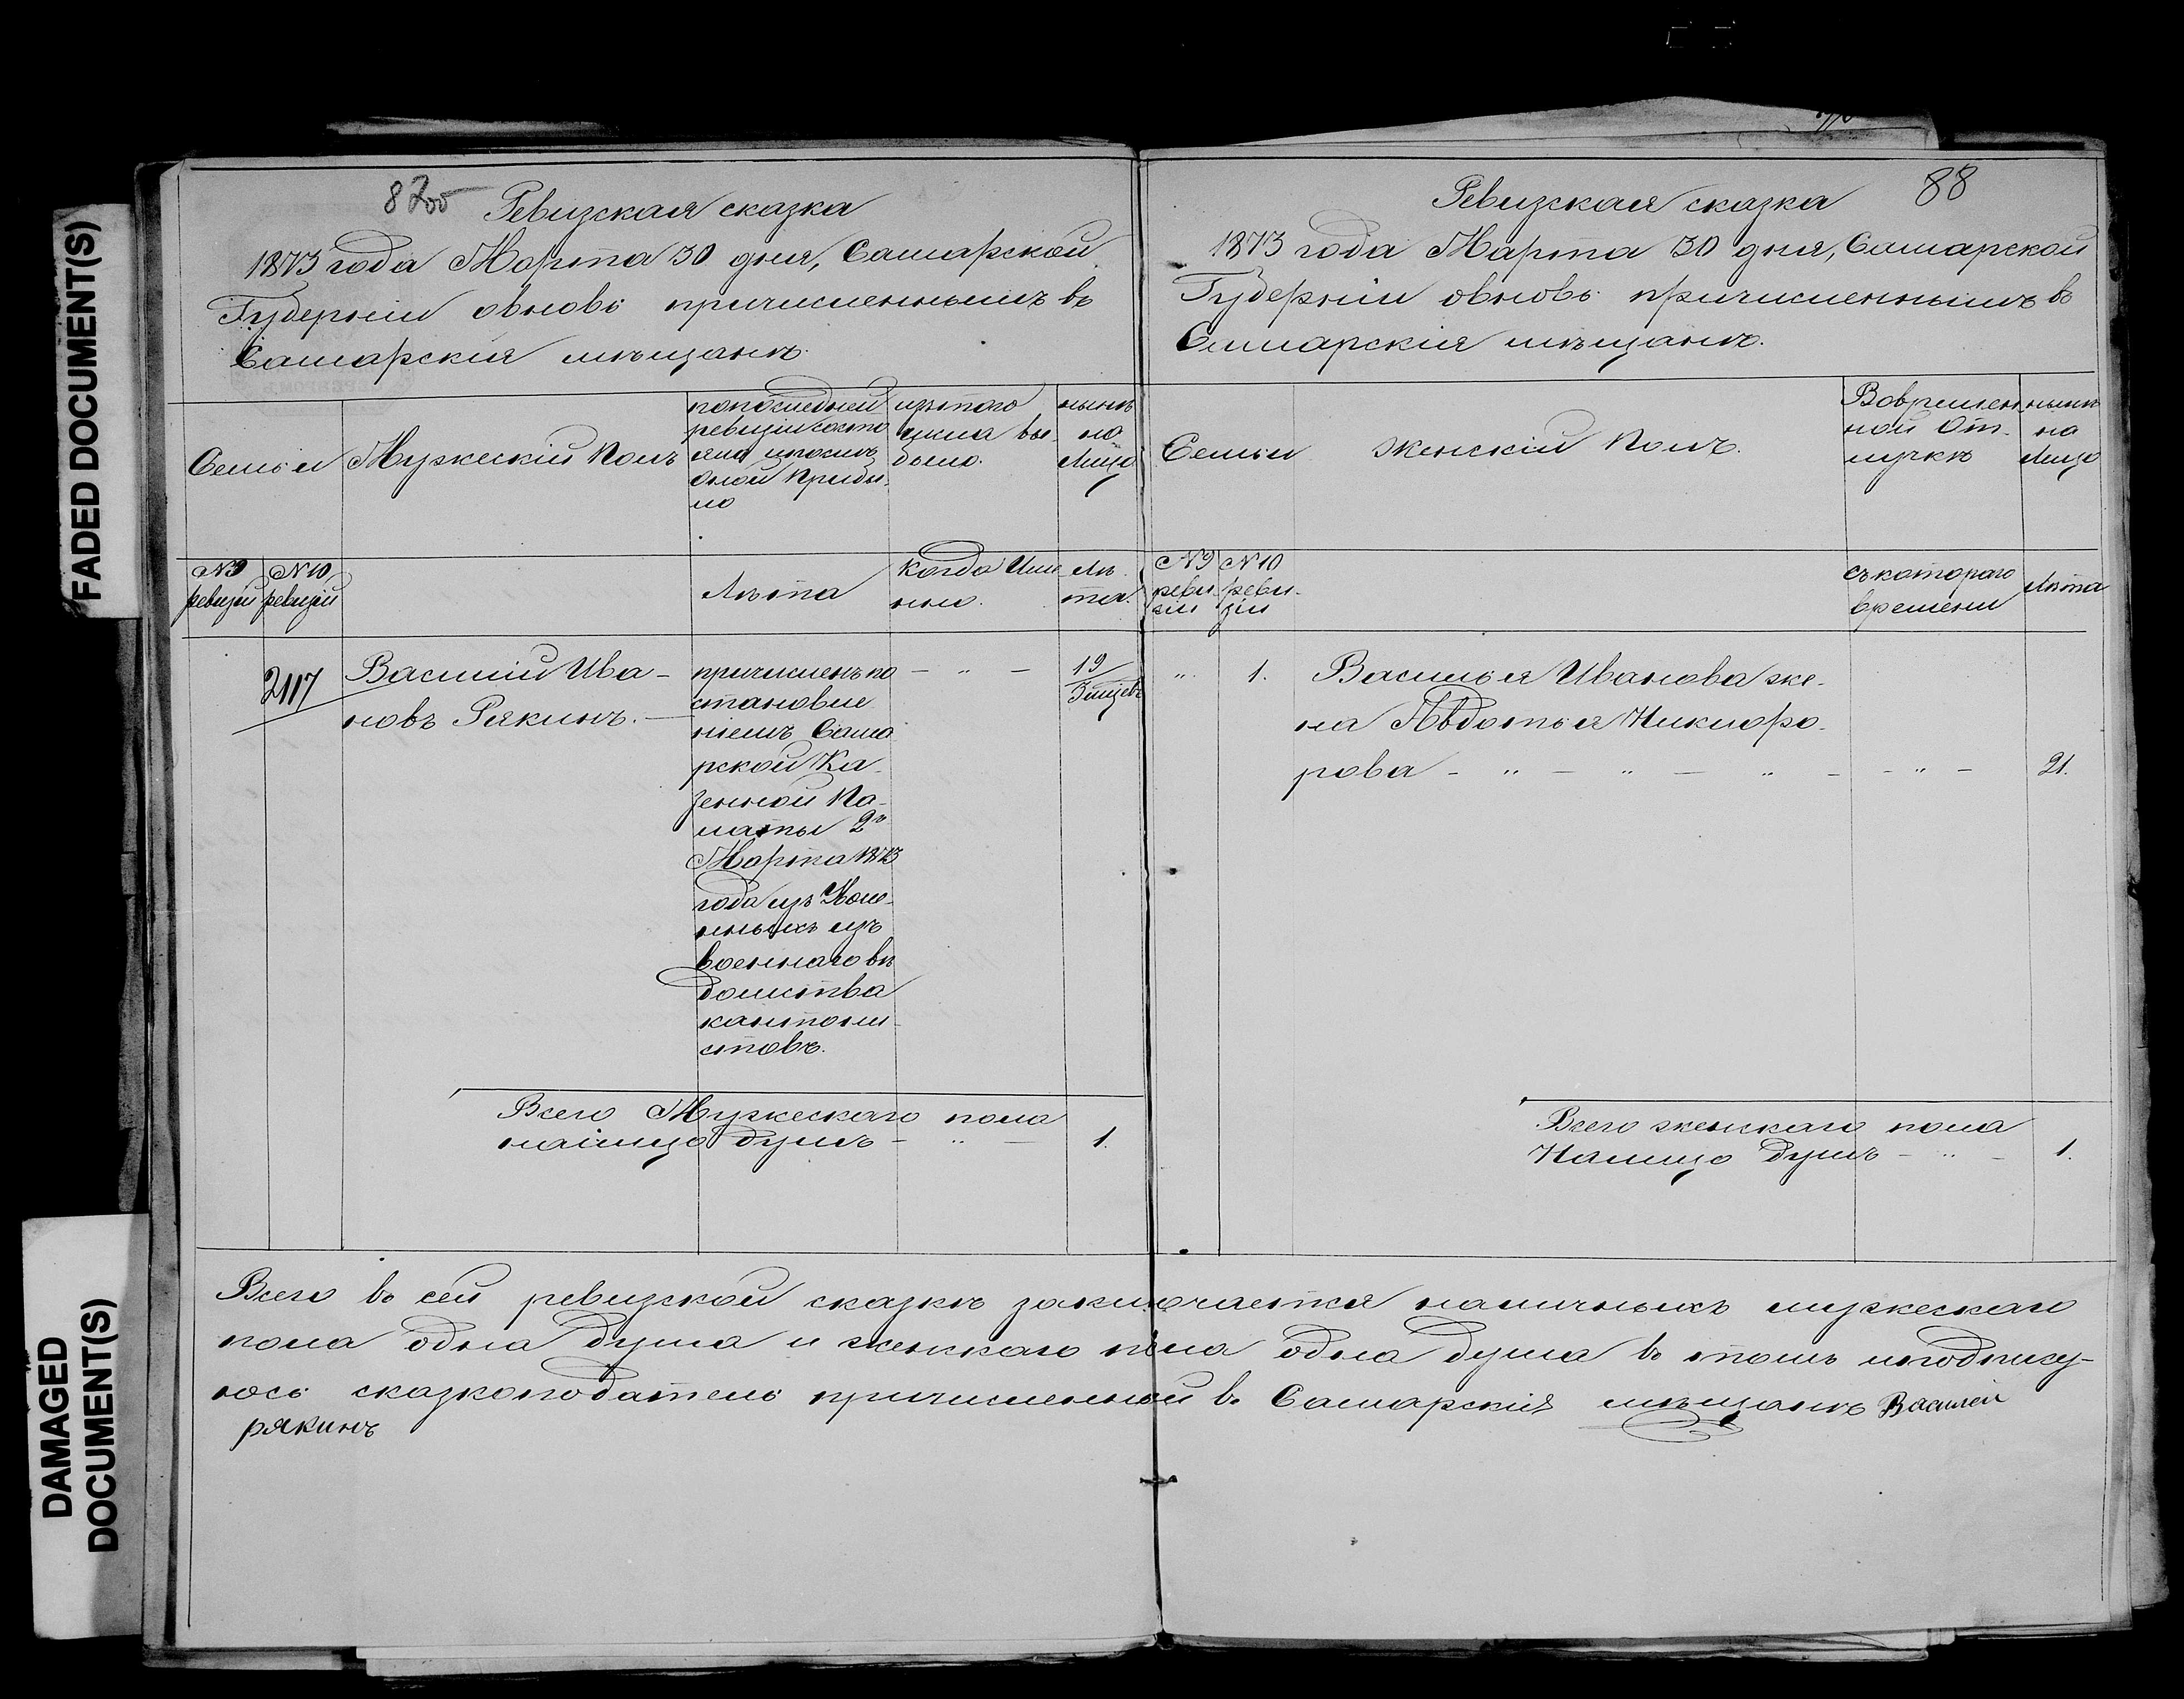 FADED DOCUMENT(S)
DAMAGED
DOCUMENT(S)
Ревизская сказка
1873 года Марта 30 дня, Самарской
Губернiи овновь причисленнымъ въ
Самарскiя мѣщанѣ.
Семьи
Мужескiй Полъ
попослѣдней
ревизiи состо
яло ипослѣ
оной Прибы-
ло
изътого
числа вы-
было.
нынѣ
на
Лицо
№9
ревизiи
№10
ревизiи
Лѣта
Когда Имя
нно.
Лѣ
та.
2117
Василiй Ива-
новъ Рякинъ.
причисленъ по
становле
нiемъ Сама
рской Ка-
зенной Па-
латы 2го
Марта 1873
года изъ
военнаго вѣ
домства
кантони-
стовъ.
19
Всего Мужескаго пола
налицо душъ - " - 1.
88
Ревизская сказка
1873 года Марта 30 дня, Самарской
Губернiи овновь причисленнымъ въ
Самарскiя мѣщанѣ.
Семьи
Женскiй Полъ.
Вовремен
ной От-
лучкѣ
нынѣ
на
Лицо
№9
реви-
зiи
№10
реви-
зiи
съкотораго
времени
Лѣта
" 1. Василья Иванова же-
на Авдотья Никифо-
рова - " - " - " - - " - 21.
Всего женскаго пола
Налицо Душъ - " - 1.
Всего въ сей ревизской сказкѣ заключается наличныхъ мужескаго
пола одна душа и женскаго пола одна душа въ томъ иподпису-
юсь сказкоподатель причисленный въ Самарскiя мѣщанѣ Василей
рякинъ